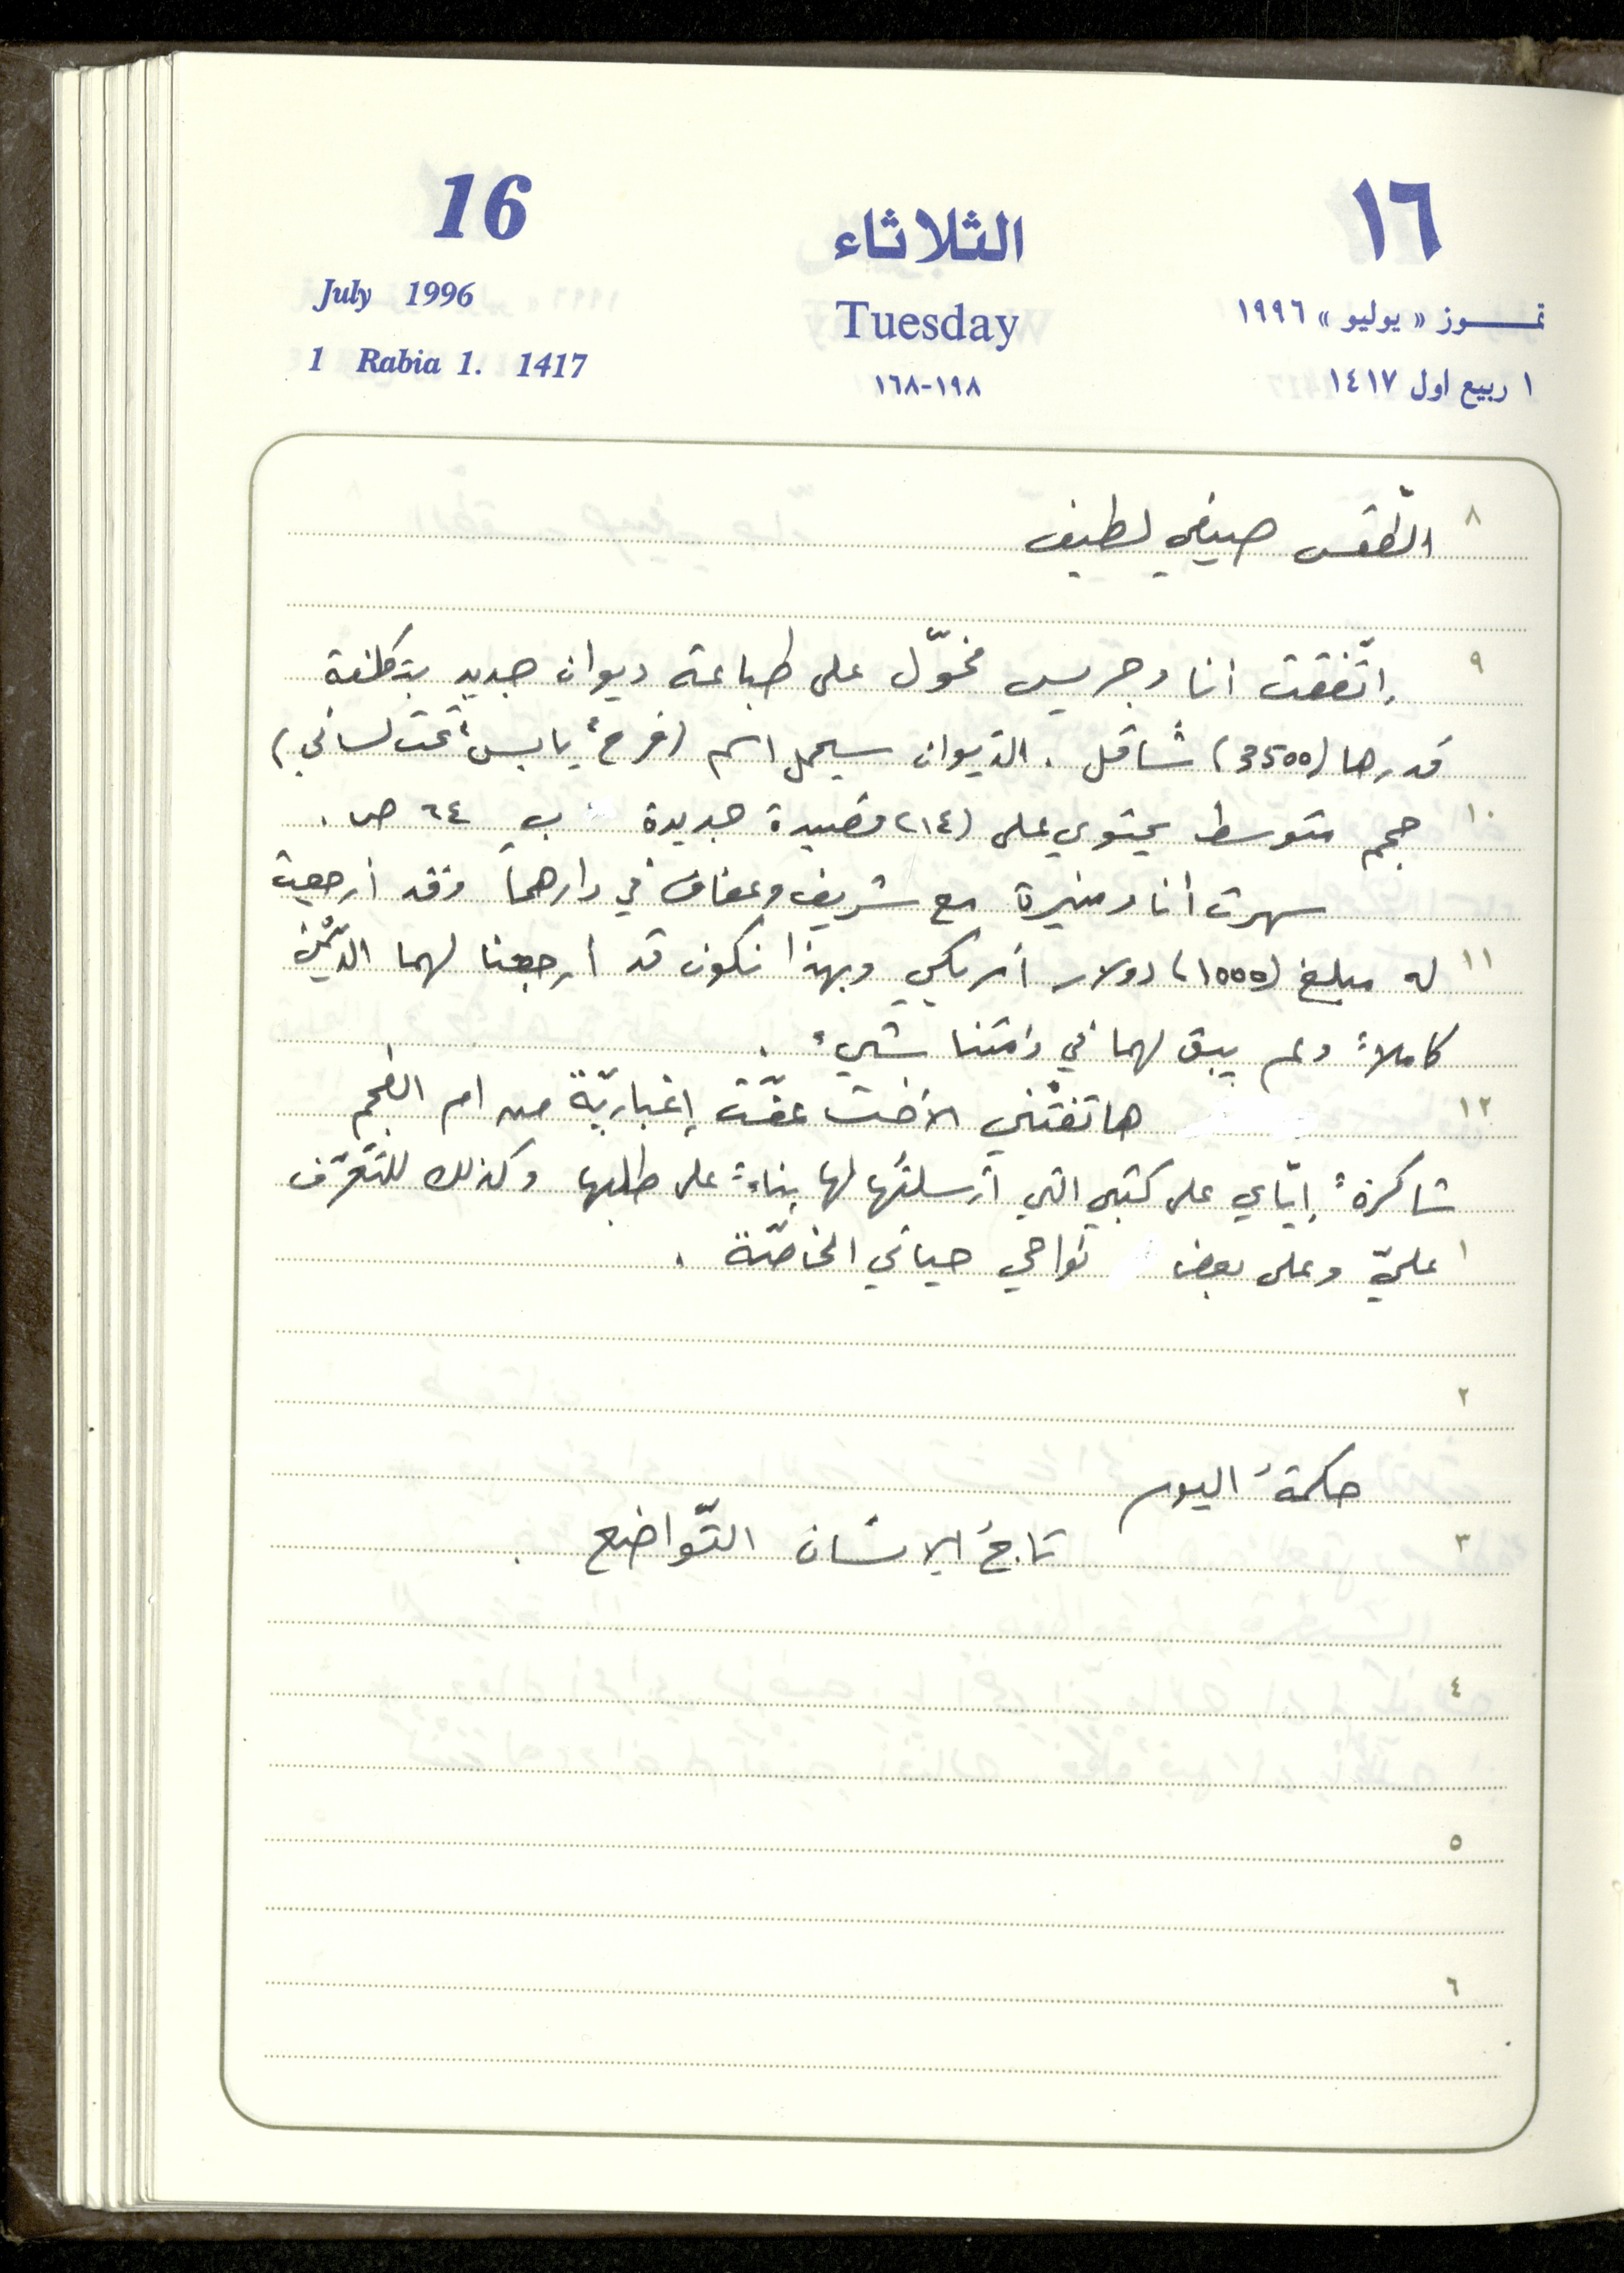 16
الثلاثاء
١٦
July 1996
Tuesday
تمــــوز « يوليو » ١٩٩٦
1 Rabia 1. 1417
١٩٨-١٦٨
١ ربيع اول ١٤١٧
٨ الطّقس صيفي لطيف
٩ إتّفقت انا وجريس مخوّل على طباعة ديوان جديد بتكلفة
قدرها (3500) شاقل . الدّيوان سيحمل اسم (فرحٌ يابسٌ تحت لساني)
١٠ حجم متوسط يحتوي على (١٤) قصيدة جديدة ب ٦٤ ص .
سهرت أنا ومنيرة مع شريف وعفاف في دارهما وقد أرجعت
١١ له مبلغ (١٥٥٥) دولار أمريكي وبهذا نكون قد أرجعنا لهما الدّين
كاملاً ولم يبق لهما في ذمّتنا شيء .
١٢ هاتفتني الأخت عفّت إغباريّة من ام الفحم
شاكرةً إيّاي على كتبي التي أرسلتُها لها بناءً على طلبها وكذلك للتّعرّف
١ عليّ وعلى بعض نواحي حياتي الخاصّة .
٢
حكمةُ اليوم
٣ تاجُ الإنسان التّواضع .
٤
٥
٦